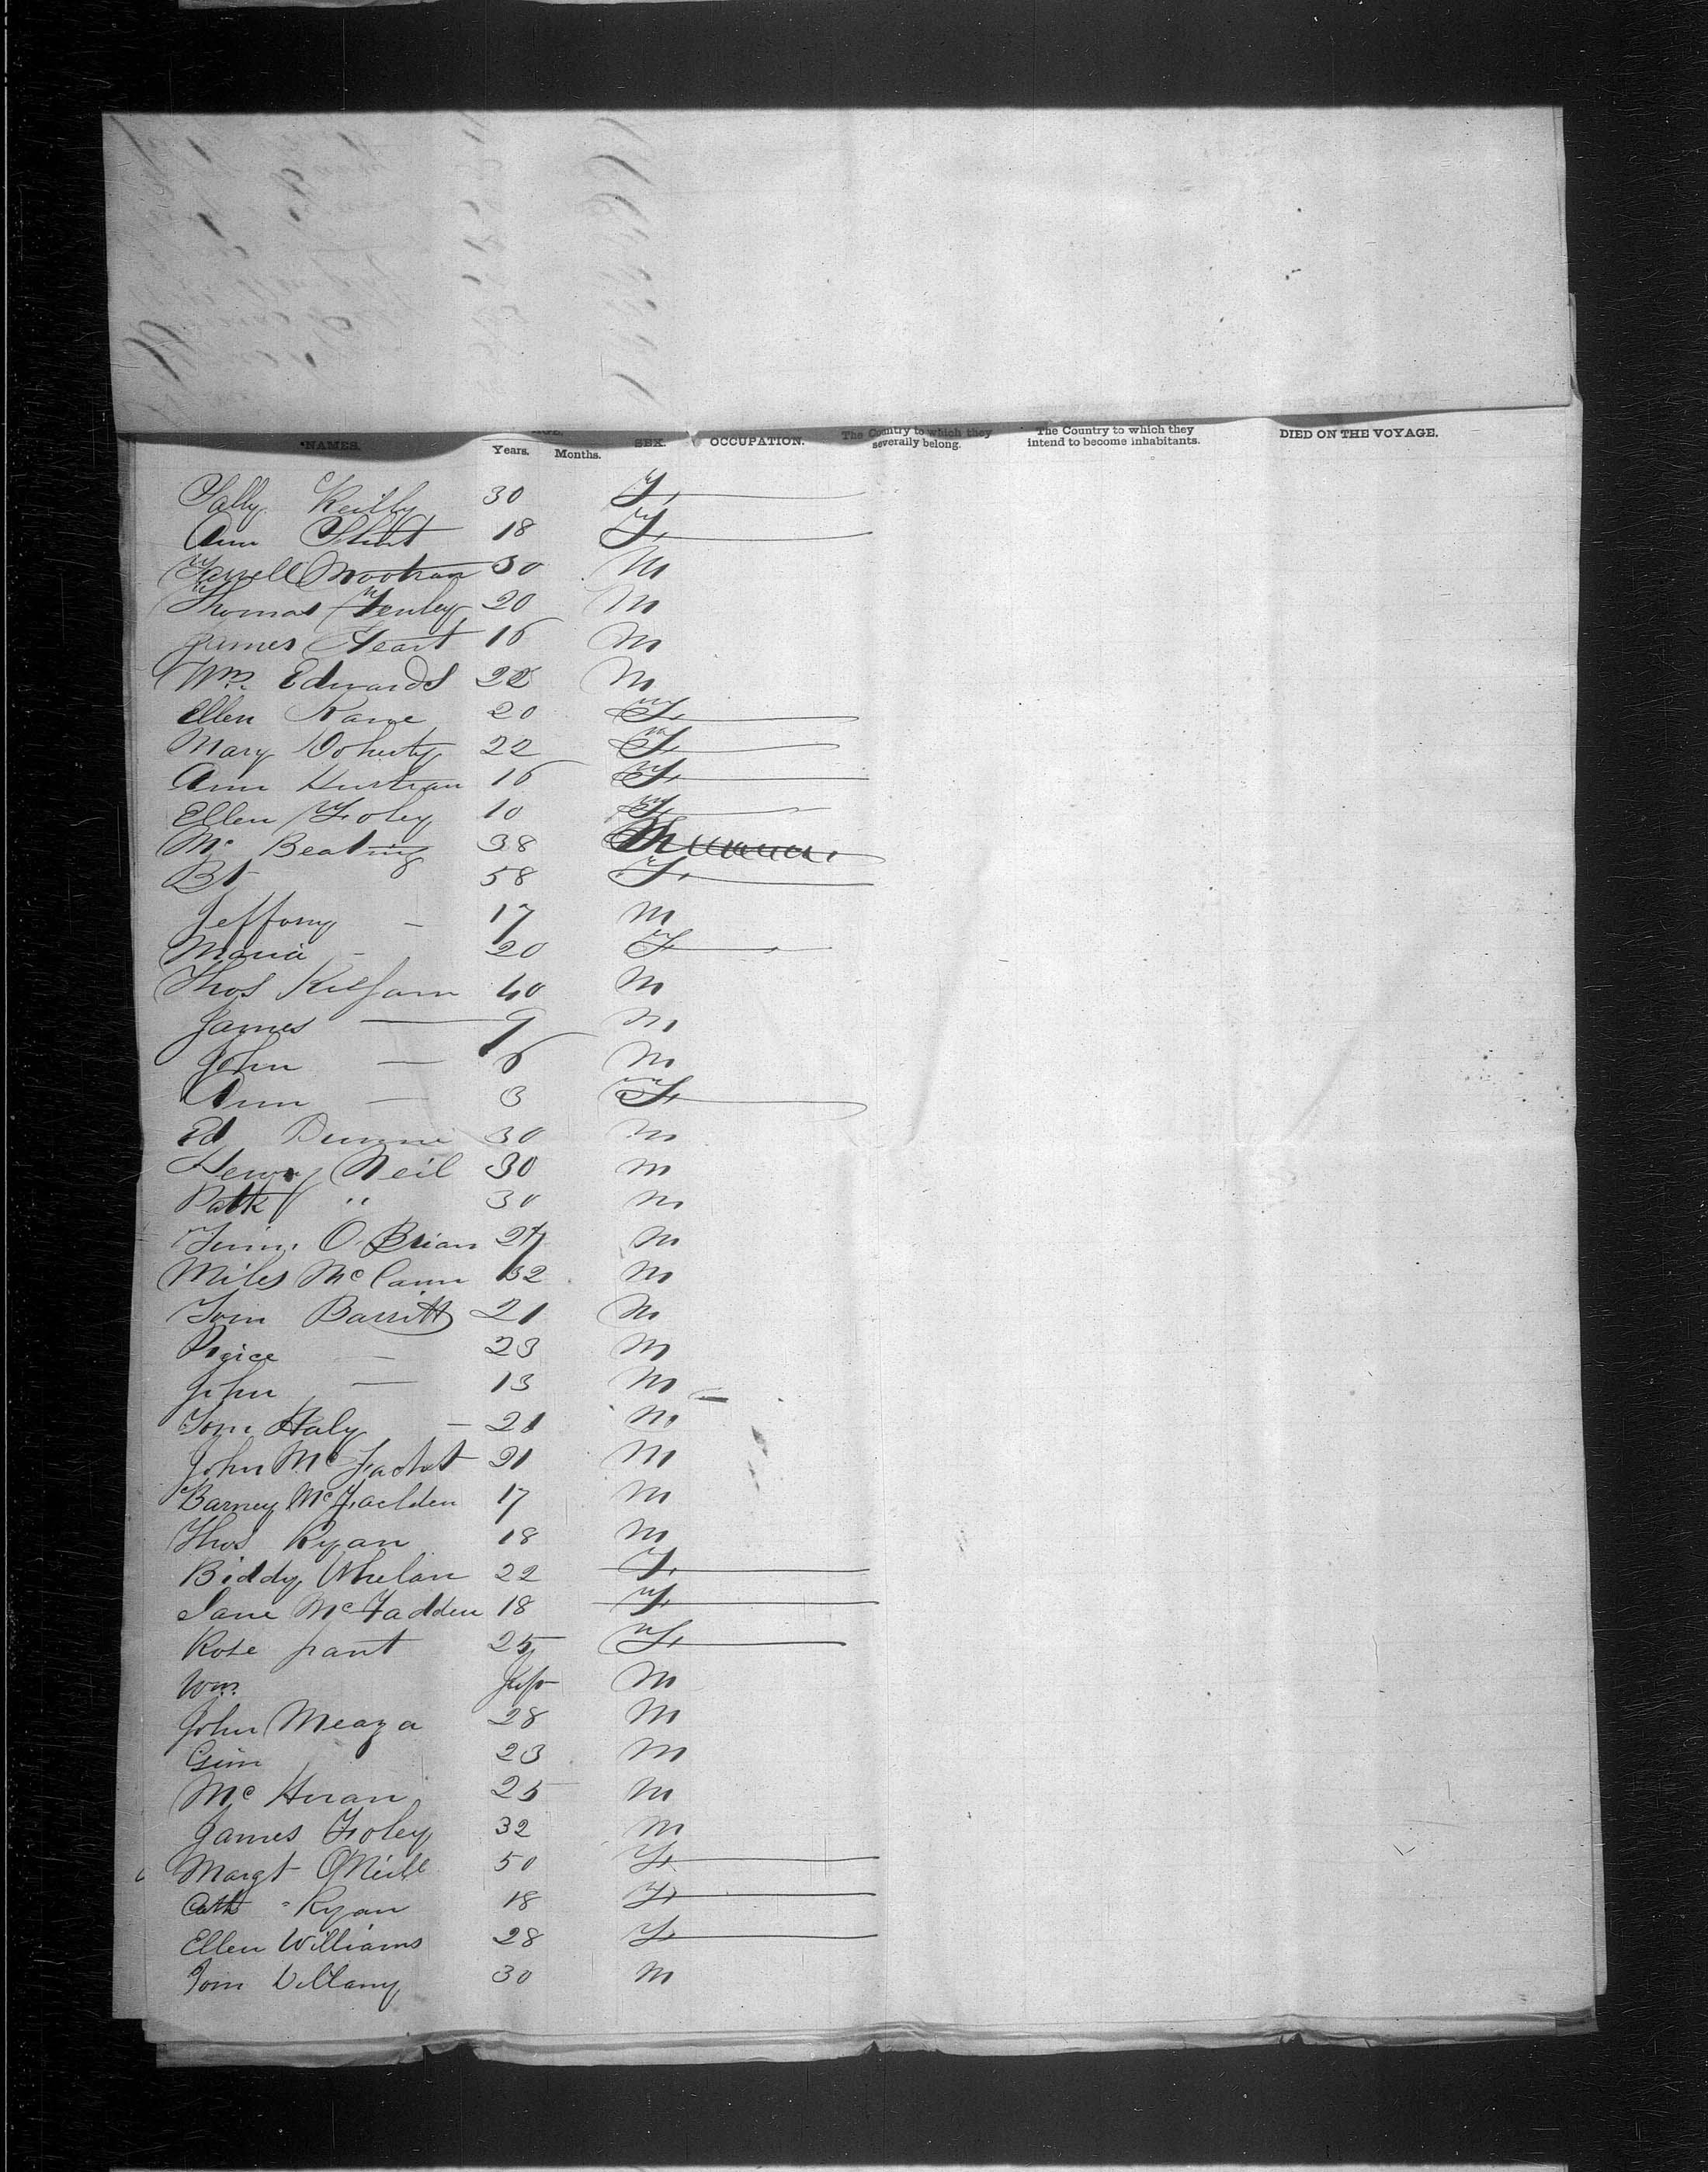 NAMES. AGE. Years. Months. SEX. OCCUPATION. The Country to which they severally belong. The Country to which they intend to become inhabitants. DIED ON THE VOYAGE.
Sally Reilly 30 F
Ann 18 F
Farrell 30 M
Thomas Fenley 20 M
James Heart 16 M
Wm. Edwards 22 M
Ellen Kane 20 F
Mary Doherty 22 F
Ann 16 F
Ellen Foley 10 F
Mc Beating 38
Bt 58 F
Jeffony — 17 M
Maria - 20 F
Thos 40 M
James — 9 M
John — 6 M
Ann — 3 F
Ed Dunne 30 M
Henry Neil 30 M
Patk " 30 M
O Brian 27 M
Miles McCann 32 M
Tom Barritt 21 M
Peirce — 23 M
John — 13 M
Tom Haly — 21 M
John Mc 21 M
Barney McFadden 17 M
Thos Ryan 18 M
Biddy Whelan 22 F
Jane McFadden 18 F
Rose 25 F
Wm. M
John Meaza 28 M
23 M
Mc 25 M
James Foley 32 M
Margt O'Neill 50 F
Cath Ryan 18 F
Ellen Williams 28 F
Tom Dillany 30 M